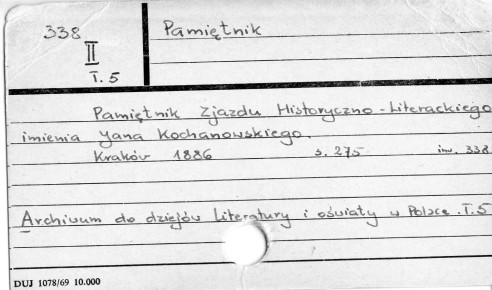 338
II
T.5
Pamiętnik
Pamiętnik Zjazdu Historyczno-Literackiego
imienia Jana Kochanowskiego.
Kraków 1886 s. 275 inw. 338
Archiwum do dziejów Literatury i oświaty w Polsce. T.5
DUJ 1078/69 10.000